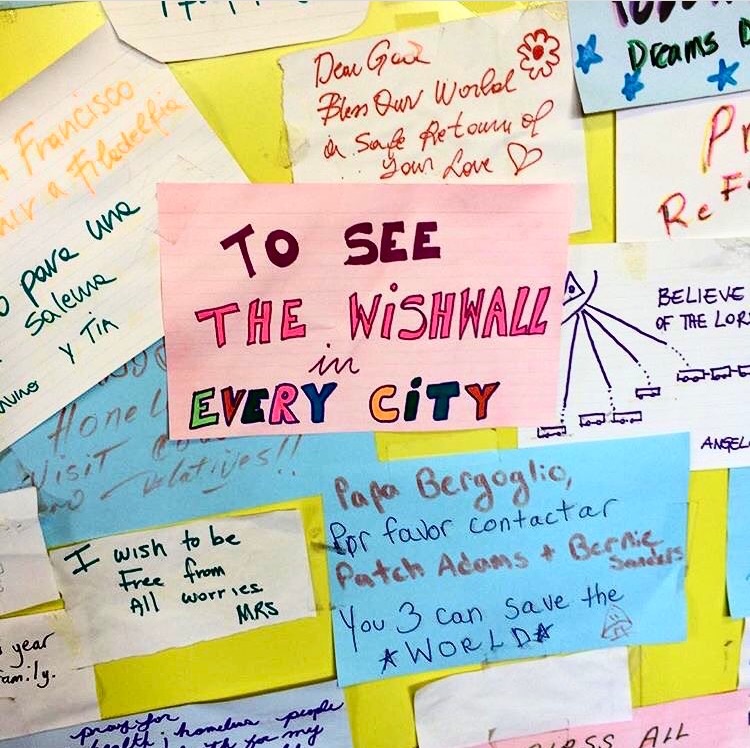 Dreams
Dear God
Bless Our World
in Safe Return of
Your Love
Francisco
a Filadelfia
para una
Salema
Y TIA
TO SEE
THE WISHWALL
in
EVERY CITY
BELIEVE
OF THE LOR
ANGEL
VISIT
relatives!!
Papa Bergoglio,
Por favor contactar
Patch Adams + Bernie
Sanders
You 3 can save the
WORLD
I wish to be
Free from
All worries.
MRS
year
family.
pray for
health; homeless people
for my
ALL